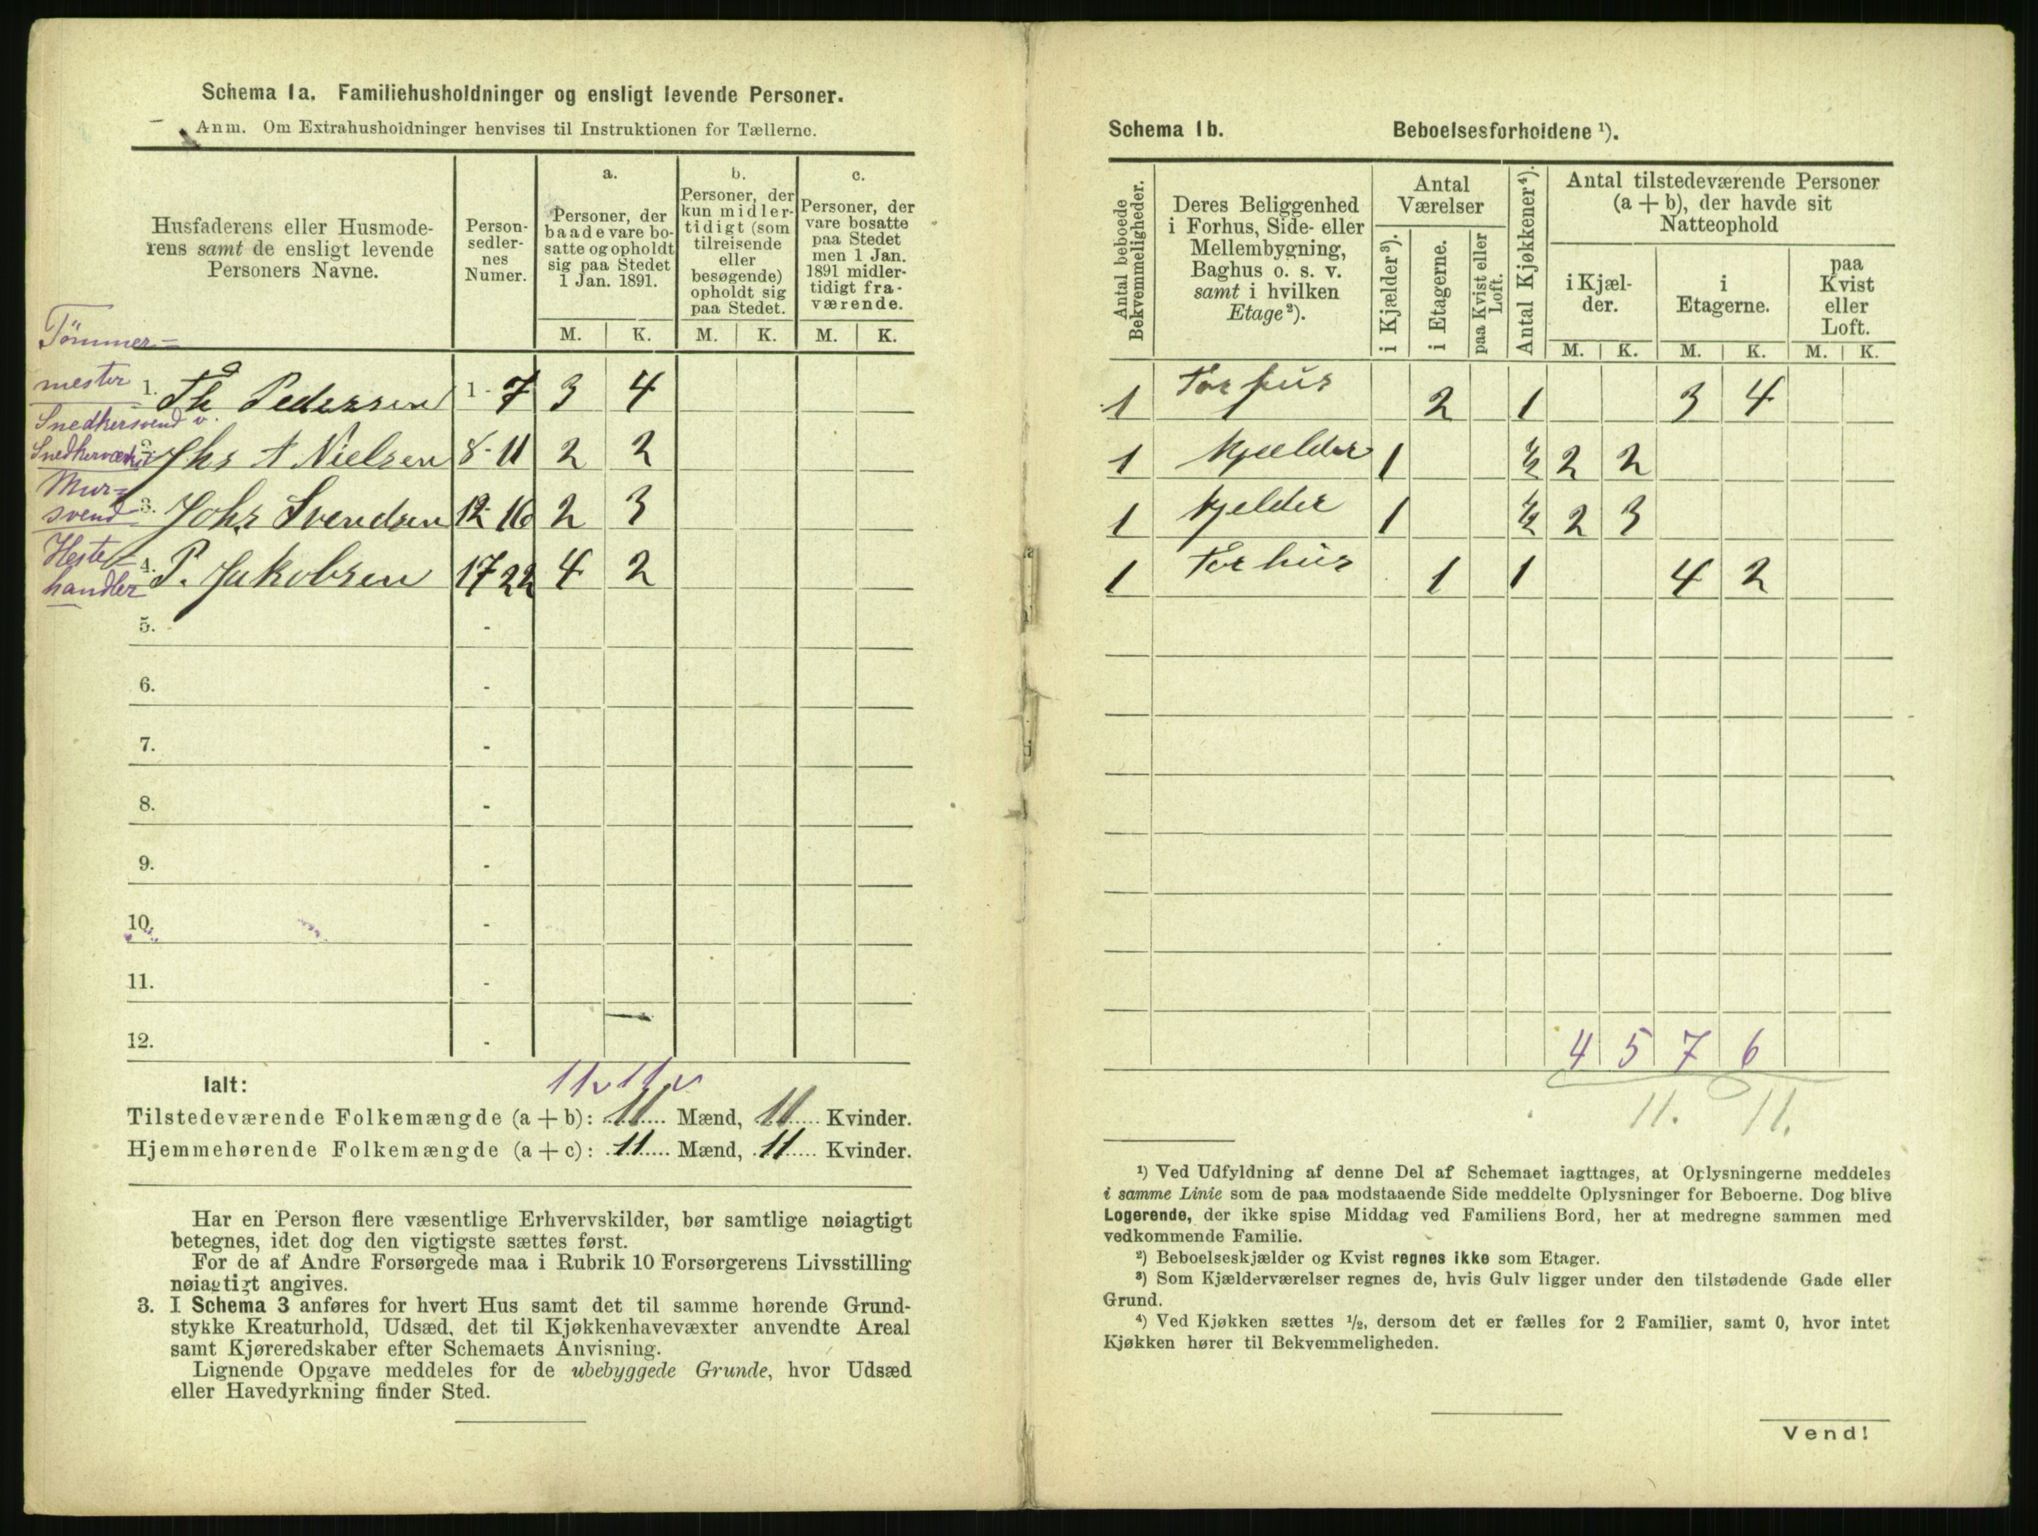 Schema 1a. Familiehusholdninger og ensligt levende Personer.
Anm. Om Extrahusholdninger henvises til Instruktionen for Tællerne.
Husfaderens eller Husmoderens samt de ensligt levende Personers Navne.
Personsedlernes Numer.
a. Personer, der baade vare bosatte og opholdt sig paa Stedet 1 Jan. 1891.
b. Personer, der kun midlertidigt (som tilreisende eller besøgende) opholdt sig paa Stedet.
c. Personer, der vare bosatte paa Stedet men 1 Jan. 1891 midlertidigt fraværende.
M. K. M. K. M. K.
Tømmermester
1. Th Pedersen 1-7 3 4
Snedkersvend v.
2. Jhs A Nielsen 8-11 2 2
Mursvend
3. Johs Svendsen 12-16 2 3
Hestehandler
4. P. Jakobsen 17 22 4 2
5. -
6. -
7. -
8. -
9. -
10. -
11. -
12. -
11 v 11 v
Ialt:
Tilstedeværende Folkemængde (a + b): 11 Mænd, 11 Kvinder.
Hjemmehørende Folkemængde (a + c): 11 Mænd, 11 Kvinder.
Har en Person flere væsentlige Erhvervskilder, bør samtlige nøiagtigt
betegnes, idet dog den vigtigste sættes først.
For de af Andre Forsørgede maa i Rubrik 10 Forsørgerens Livsstilling
nøiagtigt angives.
3. I Schema 3 anføres for hvert Hus samt det til samme hørende Grund-
stykke Kreaturhold, Udsæd, det til Kjøkkenhavevæxter anvendte Areal
samt Kjøreredskaber efter Schemaets Anvisning.
Lignende Opgave meddeles for de ubebyggede Grunde, hvor Udsæd
eller Havedyrkning finder Sted.
Schema 1b. Beboelsesforholdene ¹).
Antal beboede Bekvemmeligheder.
Deres Beliggenhed i Forhus, Side- eller Mellembygning, Baghus o. s. v. samt i hvilken Etage²).
Antal Værelser
i Kjælder³).
i Etagerne.
paa Kvist eller Loft.
Antal Kjøkkener⁴).
Antal tilstedeværende Personer (a + b), der havde sit Natteophold
i Kjælder.
i Etagerne.
paa Kvist eller Loft.
M. K. M. K. M. K.
1 Forhus 2 1 3 4
1 Kjælder 1 ½ 2 2
1 Kjelder 1 ½ 2 3
1 Forhus 1 1 4 2
4 5 7 6
11. 11.
¹) Ved Udfyldning af denne Del af Schemaet iagttages, at Oplysningerne meddeles
i samme Linie som de paa modstaaende Side meddelte Oplysninger for Beboerne. Dog blive
Logerende, der ikke spise Middag ved Familiens Bord, her at medregne sammen med
vedkommende Familie.
²) Beboelseskjælder og Kvist regnes ikke som Etager.
³) Som Kjælderværelser regnes de, hvis Gulv ligger under den tilstødende Gade eller
Grund.
⁴) Ved Kjøkken sættes ½, dersom det er fælles for 2 Familier, samt 0, hvor intet
Kjøkken hører til Bekvemmeligheden.
Vend!